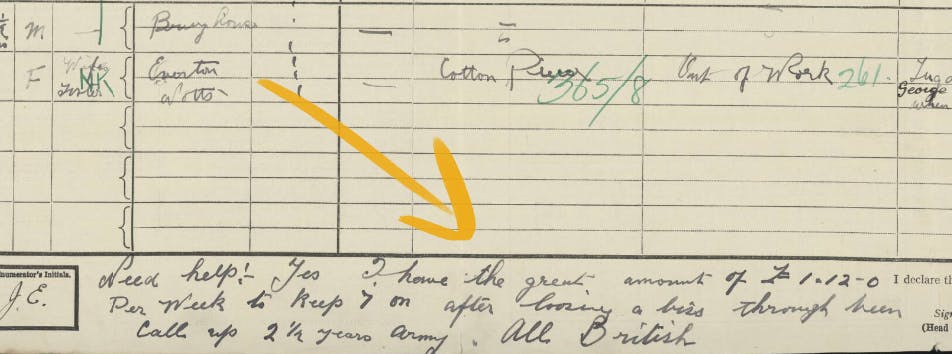 M
F Wife NK Everton Notts Cotton 365/8 Out of Work 261. George
Enumerator's Initials.
J.E.
Need help! Yes I have the great amount of £1.12-0
Per Week to Keep 7 on after loosing a biss through been
Call up 2½ years army. All British
I declare th
Sign
(Head